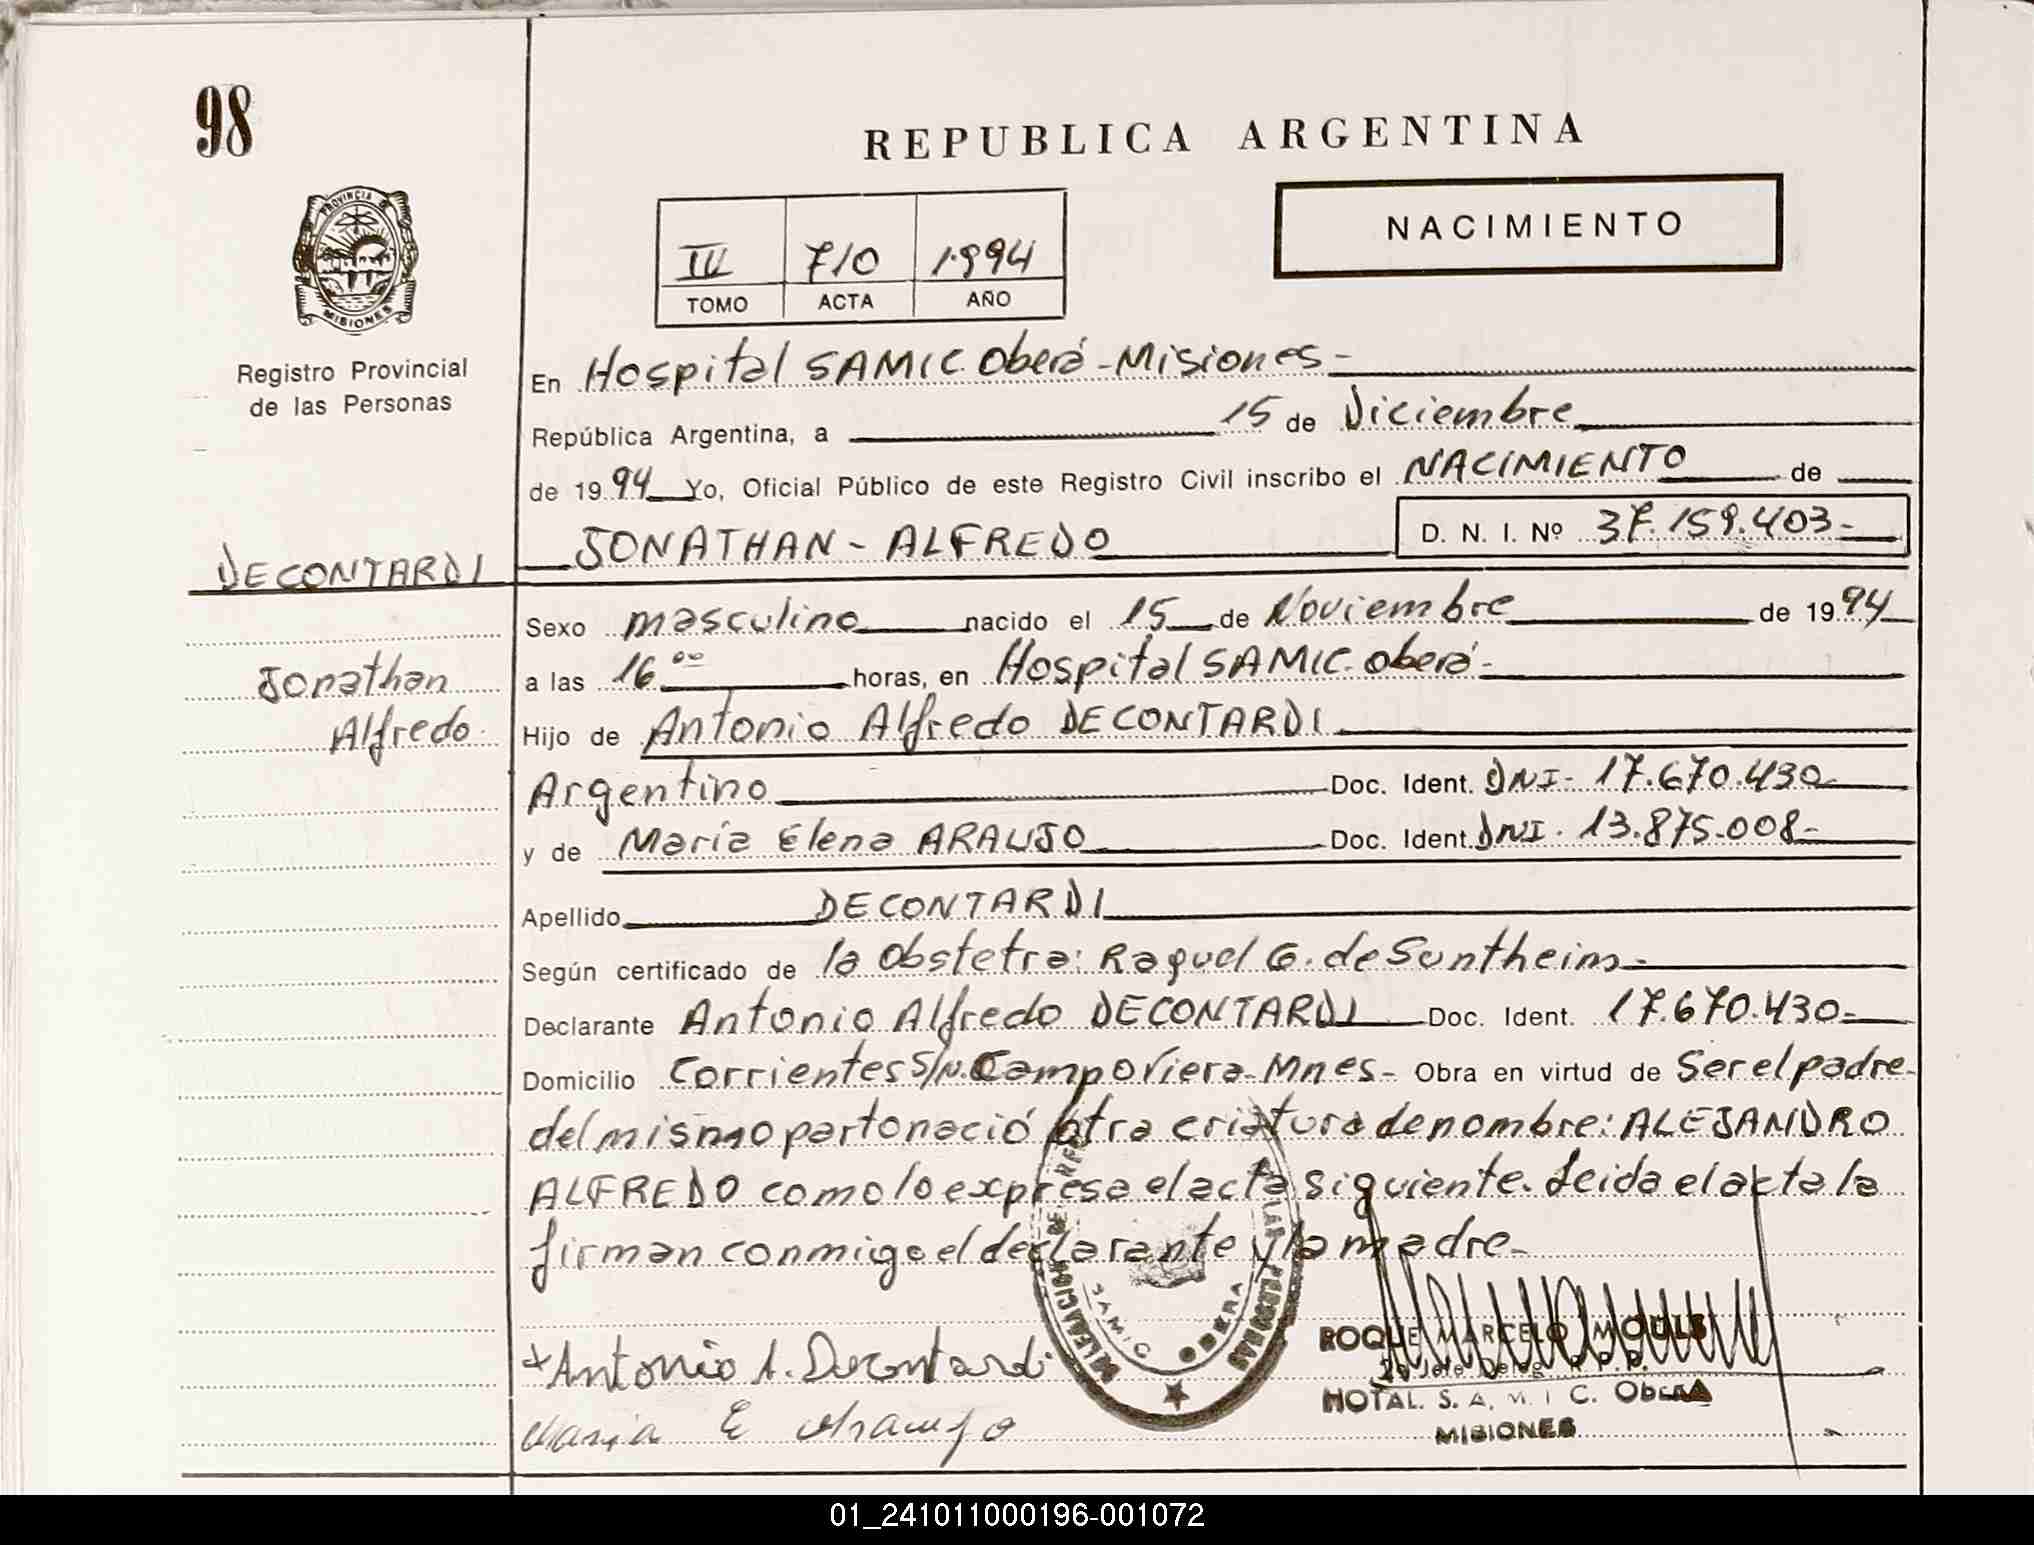 98
REPUBLICA ARGENTINA
NACIMIENTO
PROVINCIA DE
MISIONES
IV 710 1.994
TOMO ACTA AÑO
Registro Provincial
de las Personas
En Hospital SAMIC Oberá - Misiones -
República Argentina, a 15 de Diciembre
de 19 94 Yo, Oficial Público de este Registro Civil inscribo el NACIMIENTO de
JONATHAN - ALFREDO D. N. I. Nº 37.159.403-
DECONTARDI
Jonathan
Alfredo.
Sexo masculino nacido el 15 de Noviembre de 19 94
a las 16 ºº horas, en Hospital SAMIC. Oberá -
Hijo de Antonio Alfredo DECONTARDI
Argentino Doc. Ident. DNI- 17.670.430-
y de María Elena ARAUJO Doc. Ident. DNI. 13.875.008-
Apellido DECONTARDI
Según certificado de la Obstetra: Raquel G. de Sontheim-
Declarante Antonio Alfredo DECONTARDI Doc. Ident. 17.670.430-
Domicilio Corrientes S/N. Campo Viera - Mnes - Obra en virtud de Ser el padre-
del mismo parto nació otra criatura de nombre: ALEJANDRO
ALFREDO como lo expresa el acta siguiente. Leida el acta la
firman conmigo el declarante y la madre-
Antonio A. Decontardi
Maria E Araujo
DELEGACION DE LAS PERSONAS
SAMIC OBERA
ROQUE MARCELO
2º Jefe Deleg. R. P. P.
HOTAL. S. A. M. I C. Oberá
MISIONES
01_241011000196-001072